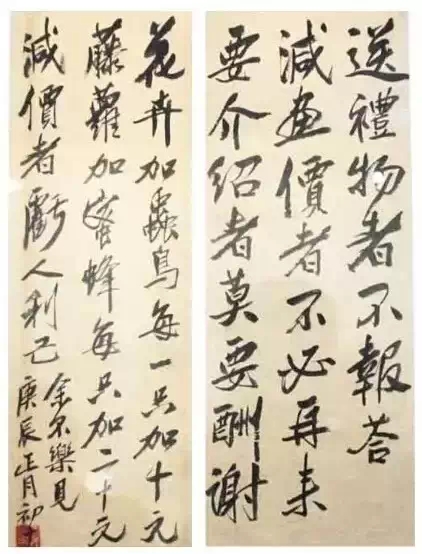 送禮物者不報荅
減画價者不必再来
要介紹者莫要酬谢
花卉加蟲鳥每一只加十元
藤蘿加蜜蜂每只加二十元
減價者虧人利己
余不樂見
庚辰正月初